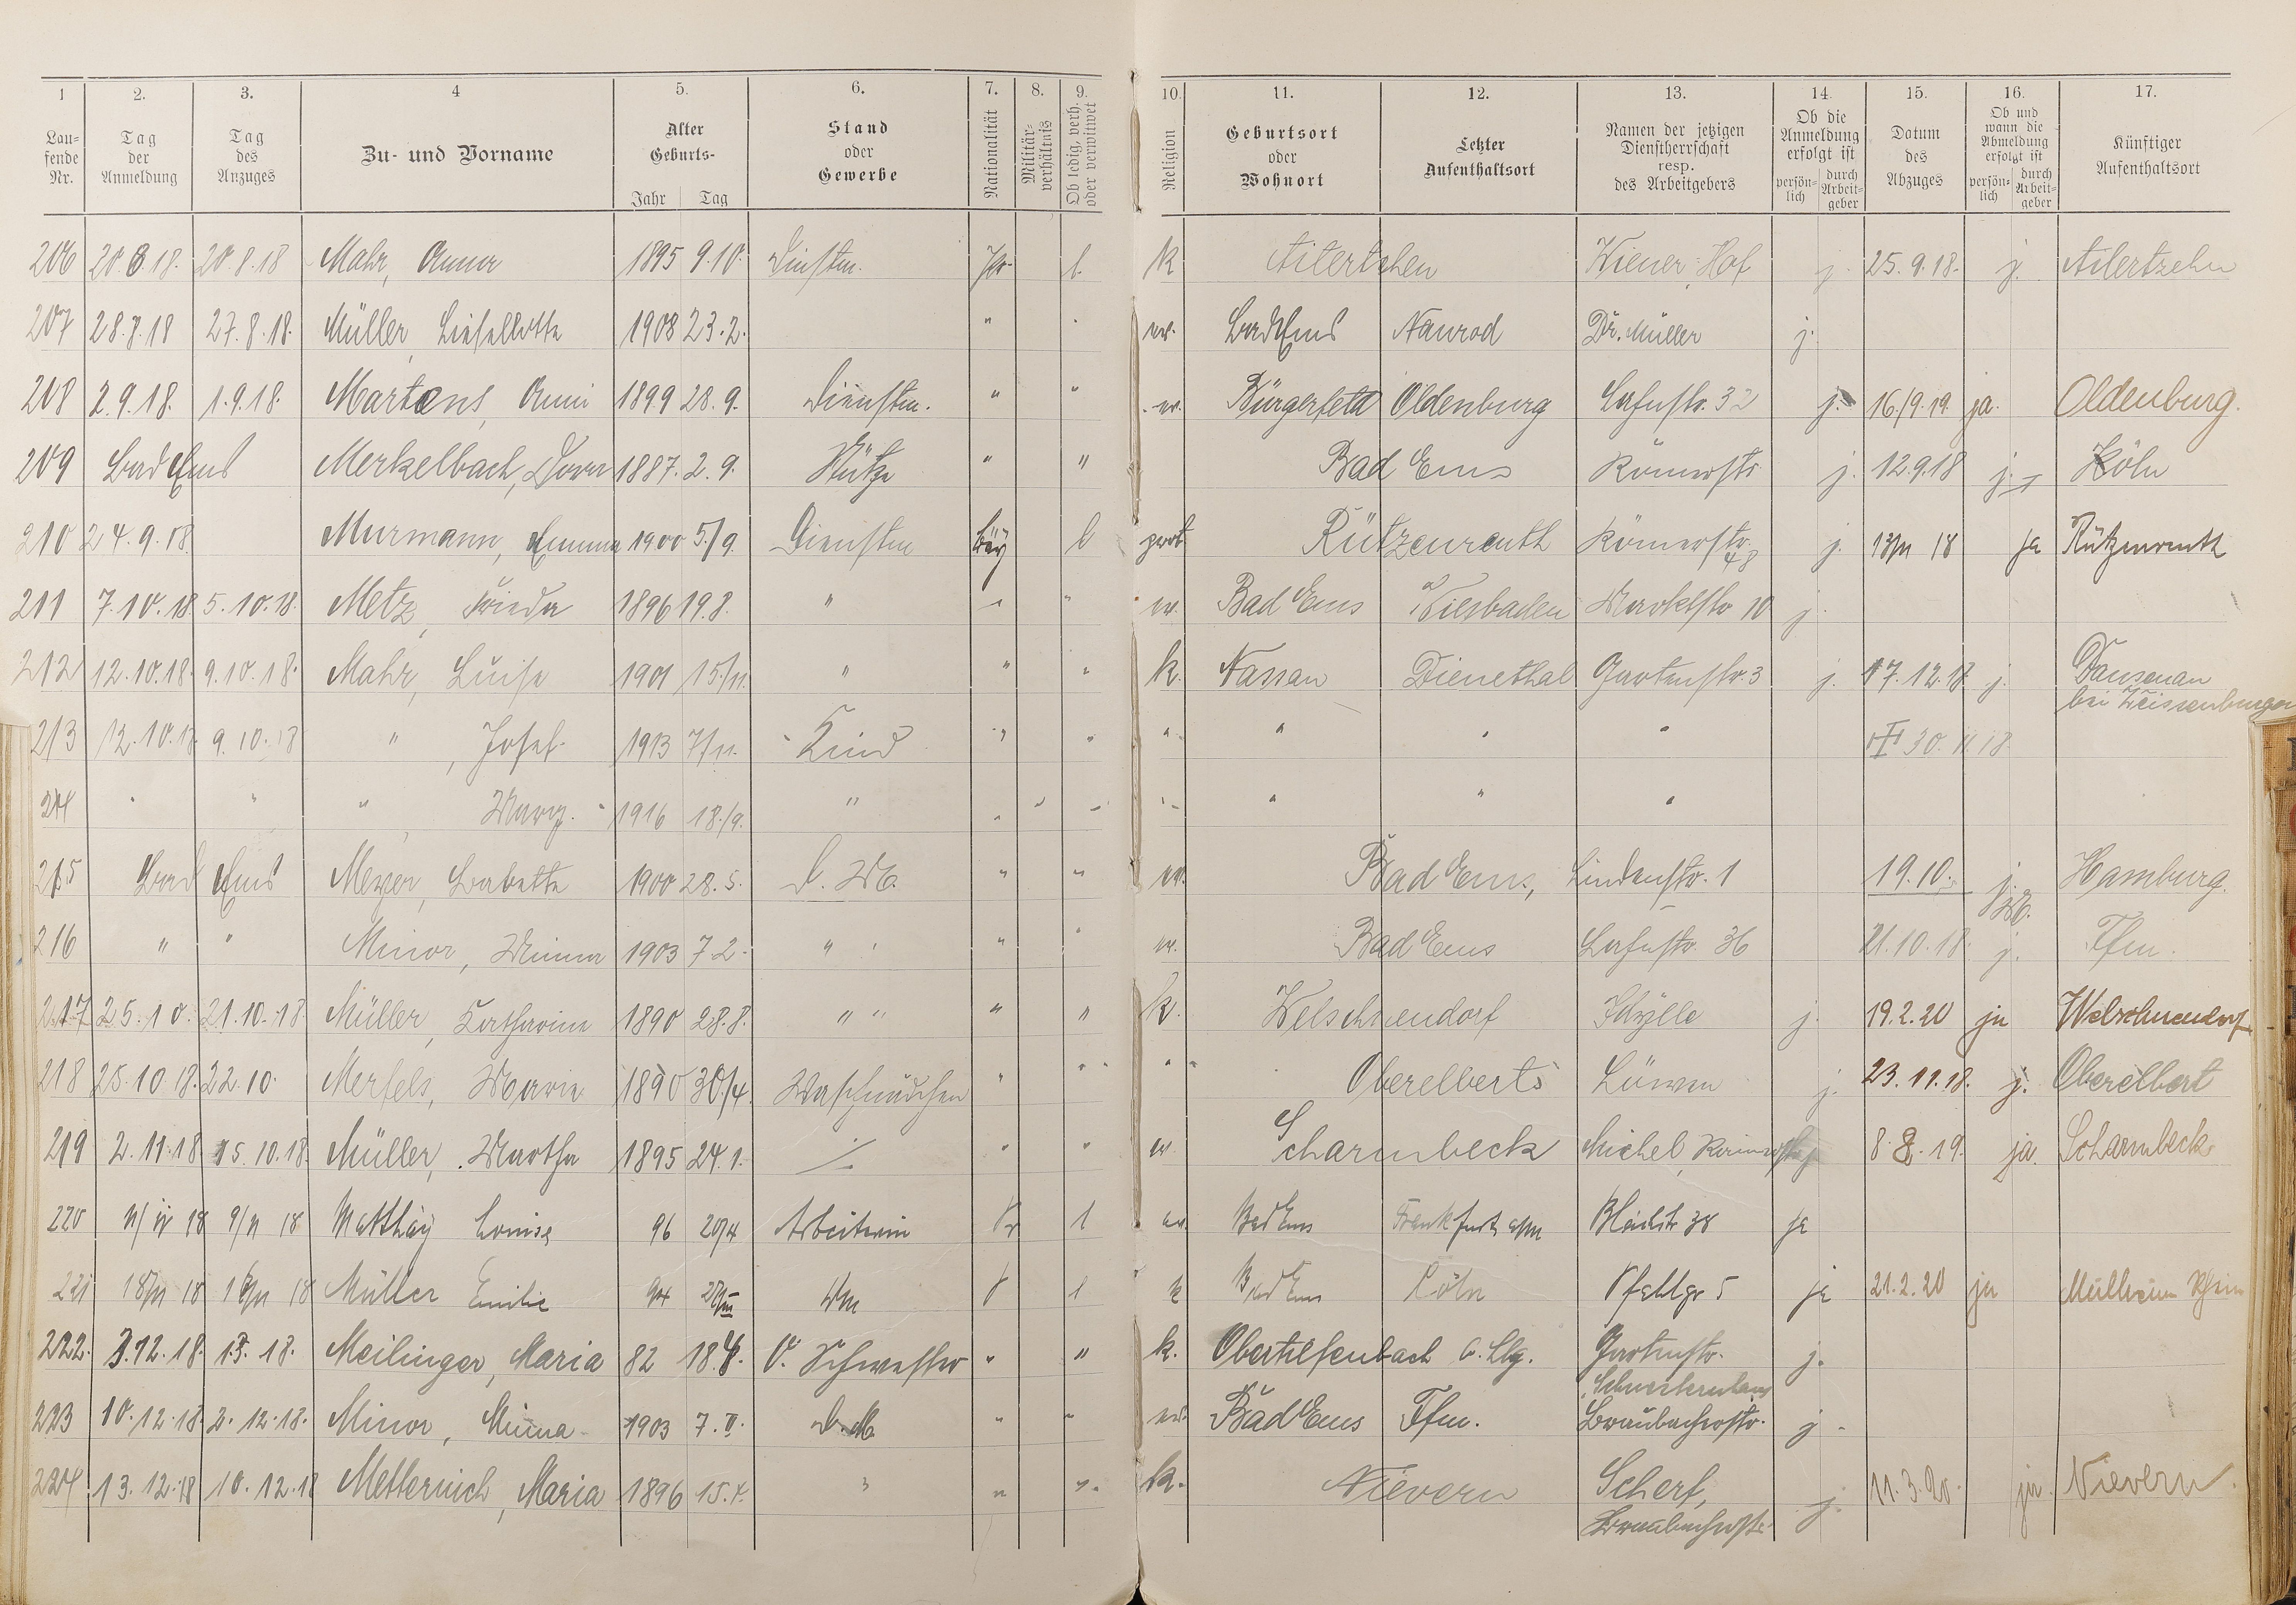 1 2. 3. 4 5. 6. 7. 8. 9. 10. 11. 12. 13. 14. 15. 16. 17.
Lau-fende Nr. Tag der Anmeldung Tag des Anzuges Zu- und Vorname Alter Geburts- Jahr Tag Stand oder Gewerbe Nationalität Militär-verhältnis Ob ledig, verh. oder verwitwet Religion Geburtsort oder Wohnort Letzter Aufenthaltsort Namen der jetzigen Dienstherrschaft resp. des Arbeitgebers Ob die Anmeldung erfolgt ist persön-lich durch Arbeit-geber Datum des Abzuges Ob und wann die Abmeldung erfolgt ist persön-lich durch Arbeit-geber Künftiger Aufenthaltsort
206 20.8.18. 20.8.18 Mahr, Anna 1895 9.10. Dienstm. Pr. l. k Wiener Hof j. 25.9.18. j.
207 28.8.18 27.8.18. Müller Lieselotte 1908 23.2. " ev. Bad Ems Naurod Dr. Müller j.
208 2.9.18. 1.9.18. Martens, Anni 1899 28.9. Dienstm. " " ev. Bürgerfeld Oldenburg Lahnstr. 32 j. 16/9.19. ja. Oldenburg.
209 Bad Ems Merkelbach, Dora 1887. 2.9. Stütze " " Bad Ems Römerstr. j. 12.9.18 j. Köln
210 24.9.18. Murmann, Emma 1900 5./9. Dienstm Bay l prot Rützenreuth Römerstr. 48 j. 13/11 18 ja Rützenreuth
211 7.10.18. 5.10.18. Metz, Frieda 1896 19.8. " " " ev. Bad Ems Wiesbaden Marktstr 10 j.
212 12.10.18. 9.10.18. Mahr, Luise 1901 15./11. " " " k. Nassau Dienethal Gartenstr. 3 j. 17.12.18. j. Dausenau
bei Weissenburger
213 12.10.18. 9.10.18 " , Josef 1913 7/11. Kind " " " " " " 30.11.18.
214 " " " Marg. 1916 18./9. " " " " " " "
215 Bad Ems Meyer, Babette 1900 28.5. D. M. " " ev. Bad Ems, Lindenstr. 1 19.10. j. Hamburg.
216 " " Minor, Minna 1903 7.2. " " " ev. Bad Ems Lahnstr. 36 21.10.18. j. Ffm.
217 25.10. 21.10.18. Müller, Katharina 1890 28.8. " " " " k. Welschnendorf Idylle j. 19.2.20 ja Welschnendorf
218 25.10.18. 22.10. Merfels, Marie 1890 30./4. Waschmädchen " " " Oberelberts Löwen j. 23.11.18. j. Oberelbert
219 2.11.18. 15.10.18. Müller, Martha 1895 24.1. ./. " " ev Scharmbeck Michel 8.8.19. ja. Scharmbeck
220 18 9/11 18 Matthäy Louise 96 20/4 Arbeiterin Pr l ev. Bad Ems Frankfurt a/m Bleichstr 38 ja
221 18/11 18 18 Müller Emilie 94 l k Bad Ems Cöln Pfahlgr 5 ja 21.2.20 ja Mülheim Rhein
222. 3.12.18. 18. Meilinger, Maria 82 O. Schwester " " k. Obertiefenbach Gartenstr. j.
Schwesternhaus
223 10.12.18. 2.12.18. Minor, Minna 1903 7.II. D.M. " " ev. Bad Ems Ffm. Braubacherstr. j.
224 13.12.18 10.12.18 Metternich, Maria 1896 " " " k. Nievern Scherf, j. 11.3.20. ja. Nievern.
Braubacherstr.